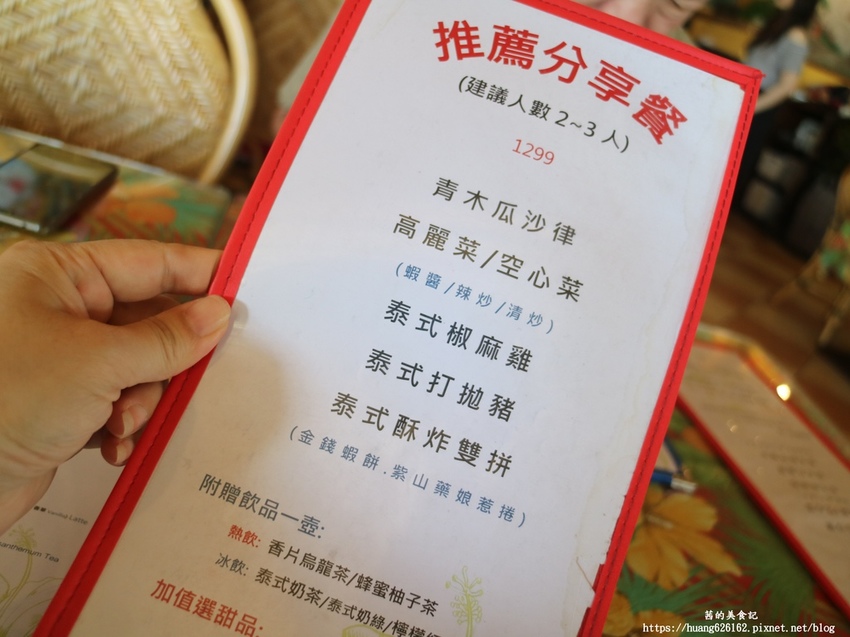 推薦分享餐
(建議人數 2~3 人)
1299
青木瓜沙律
高麗菜/空心菜
(蝦醬/辣炒/清炒)
泰式椒麻雞
泰式打拋豬
泰式酥炸雙拼
(金錢蝦餅.紫山藥娘惹捲)
附贈飲品一壺:
熱飲: 香片烏龍茶/蜂蜜柚子茶
冰飲: 泰式奶茶/泰式奶綠/檸檬
加值選甜品:
茜的美食記
https://huang626162.pixnet.net/blog